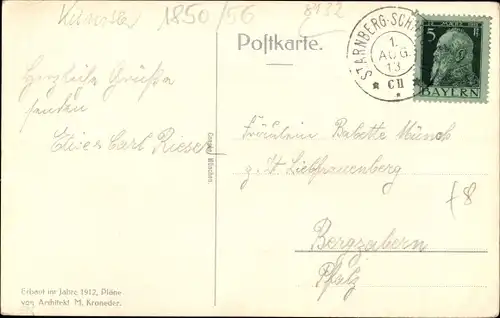 Künstler 1850/56 8932
Postkarte.
STARNBERG-SCH
1.
AUG.
13
* CII *
5 Pf
BAYERN
Herzliche Grüße
senden
Carl Rieser
München
Fräulein Babette Münch
z. Zt. Liebfrauenberg
f8
Bergzabern
Pfalz
Erbaut im Jahre 1912, Pläne
von Architekt M. Kroneder.